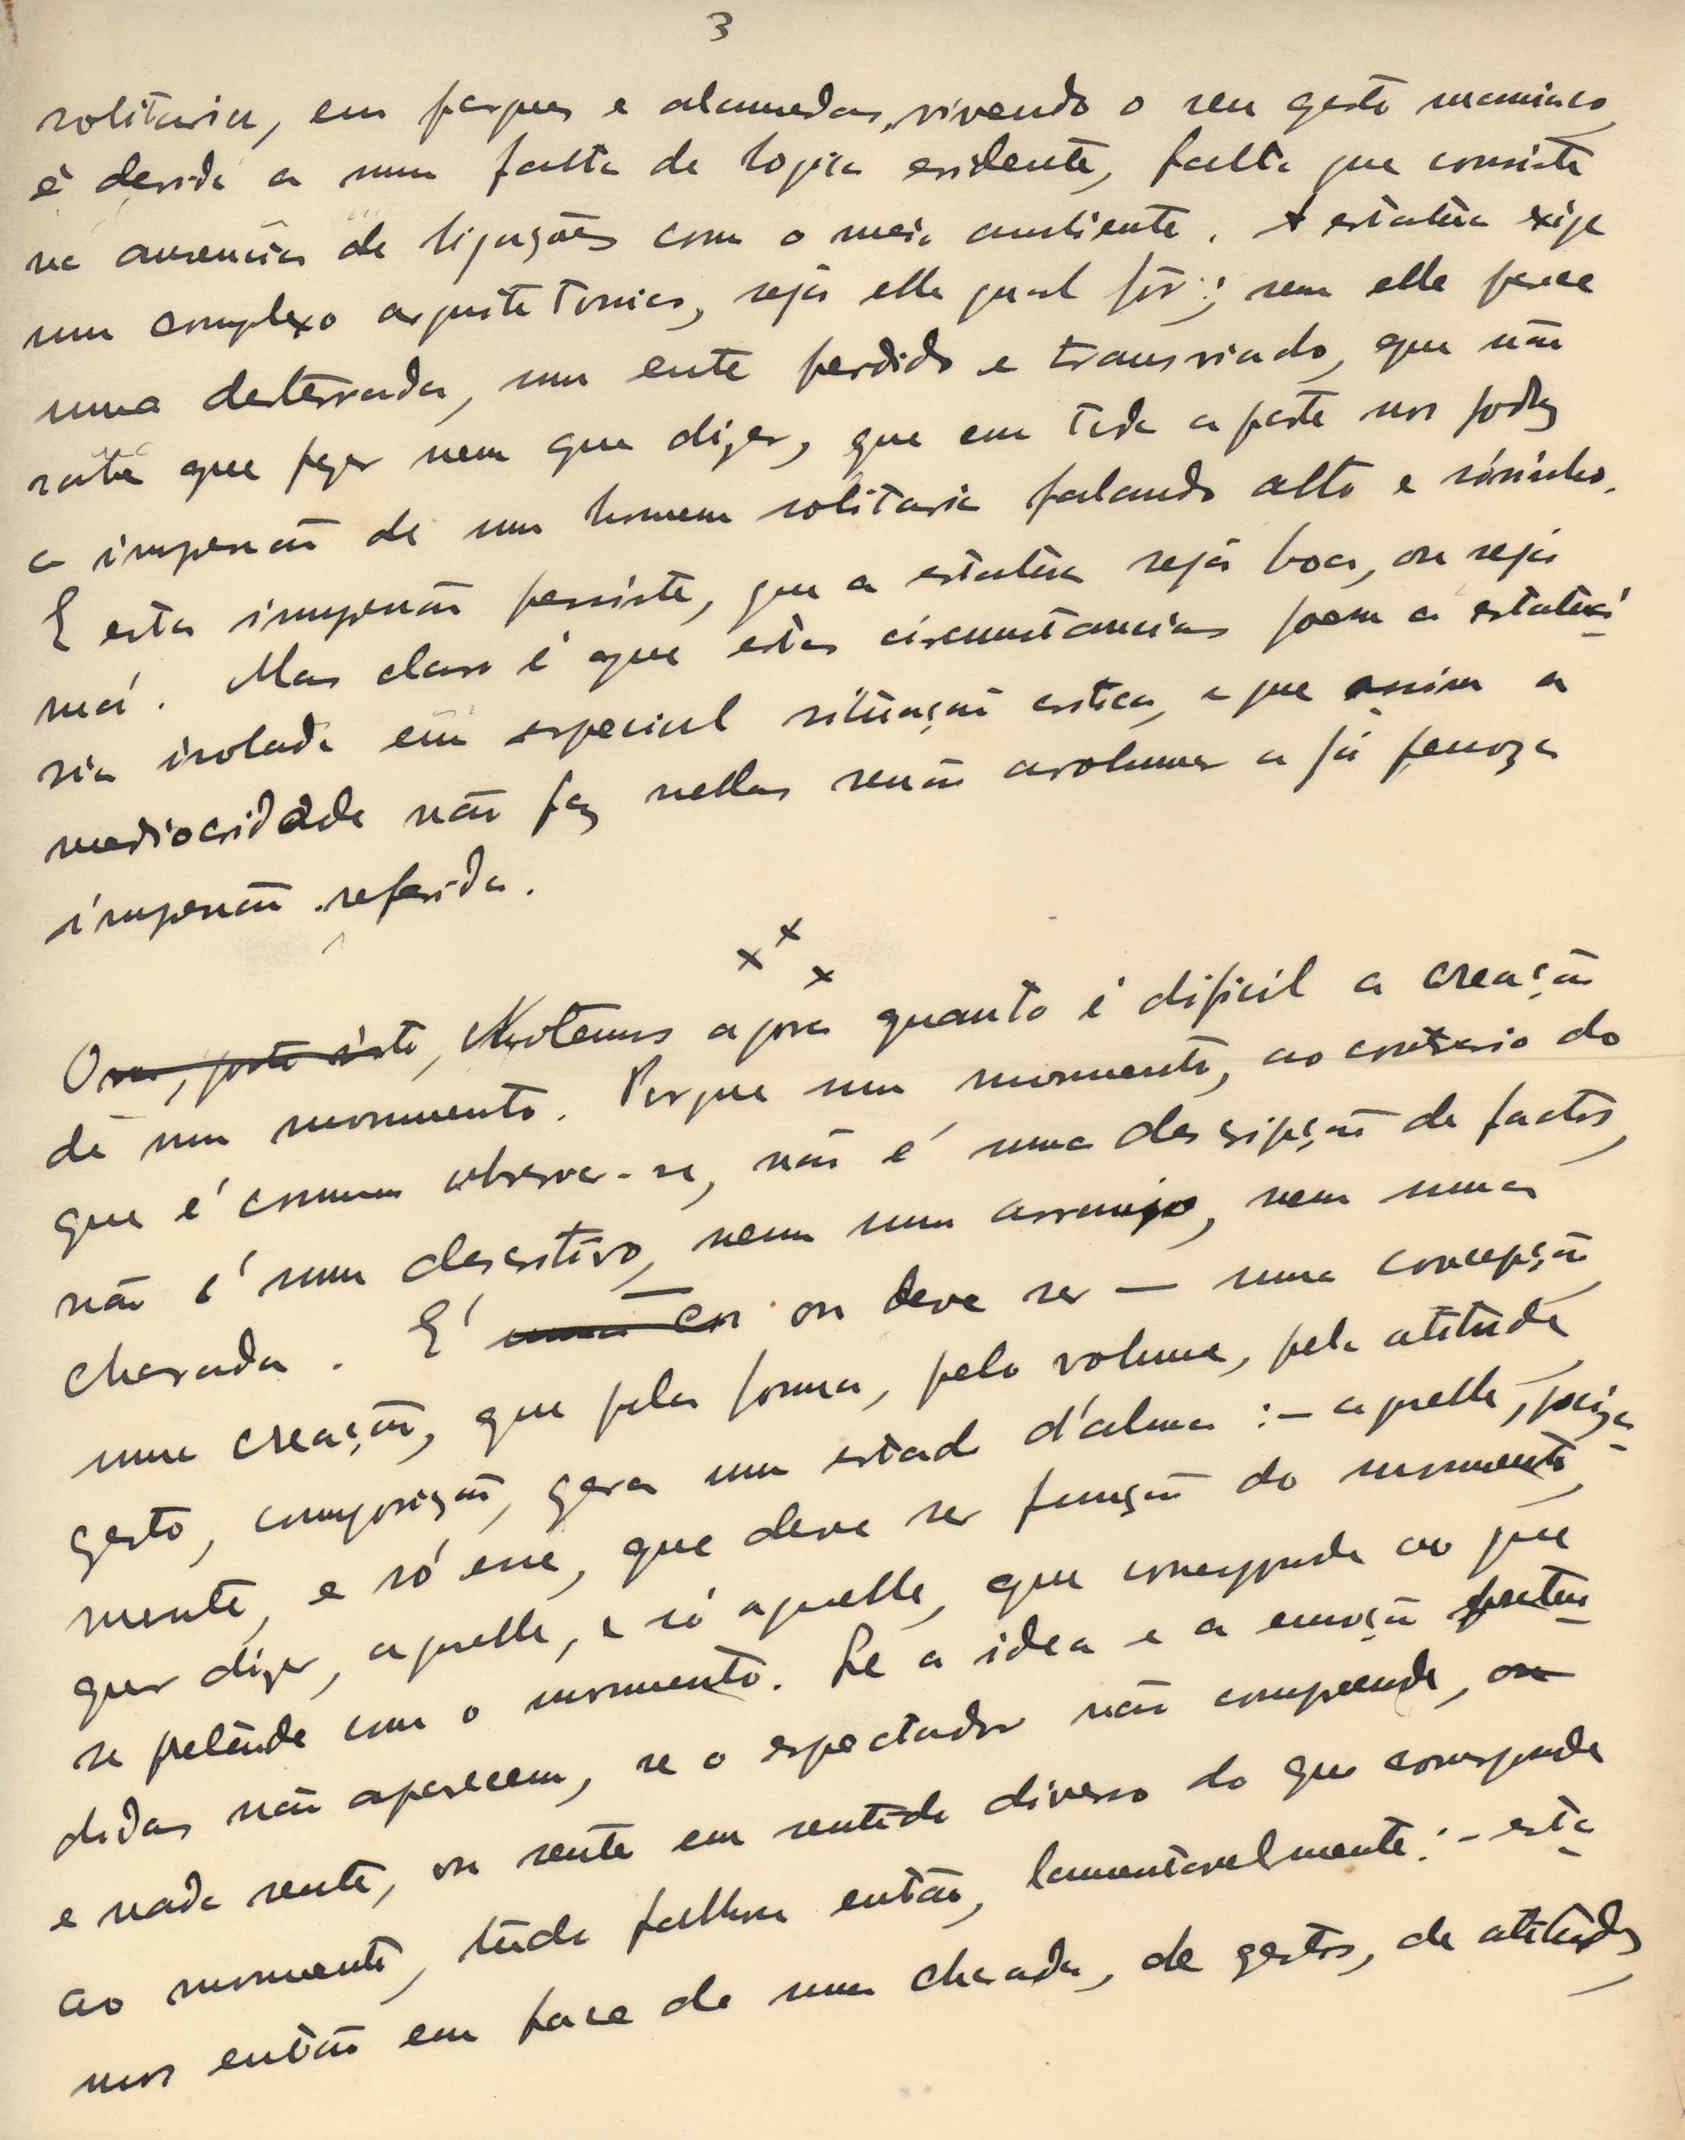 3
solitaria, em parques e alamedas, vivendo o seu gesto maniaco,
é devida a uma falta de logica evidente, falta que consiste
na ausencia de ligações com o meio ambiente. A estatua exige
um complexo arquitetonico, seja elle qual fôr; sem elle parece
uma desterrada, um ente perdido e transviado, que não
sabe que fazer nem que dizer, que em toda a parte nos produz
a impressão de um homem solitario falando alto e sósinho.
E esta impressão persiste, que a estatua seja boa, ou seja
má. Mas claro é que estas circumstancias poem a estatua-
ria isolada em especial situação critica, e que assim a
mediocridade não faz nellas senão avolumar a já penoza
impressão referida.
x x x
Ora, posto isto, Notemos agora quanto é dificil a creação
de um monumento. Porque um monumento, ao contrario do
que é comum observar-se, não é uma descripção de factos,
não é um descritivo, nem um arranjo, nem uma
charada. E' uma con ou deve ser — uma concepção,
uma creação, que pela forma, pelo volume, pela atitude,
gesto, composição, gera um estado d'alma: — aquelle, preciza-
mente, e só esse, que deve ser função do monumento,
quer dizer, aquelle, e só aquelle, que corresponde ao que
se pretende com o monumento. Se a idea e a emoção preten-
didas não aparecem, se o espectador não comprende, ou
e nada sente, ou sente em sentido diverso do que corresponde
ao monumento, tudo falhou então, lamentavelmente: — esta-
mos então em face de uma charada, de gestos, de atitudes,